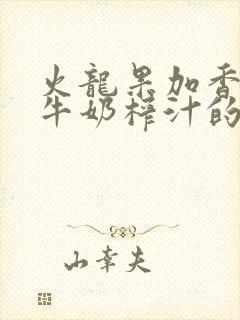 火龍果加香
牛奶榨汁的
山幸夫